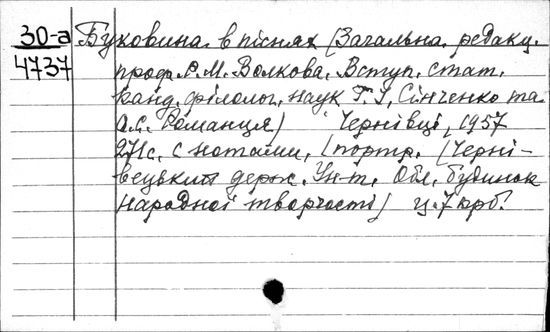 30-а Буковина в піснях (Загальна редакц.
4737 проф. А.М. Волкова. Вступ. стат.
канд. філолог. наук Г.І. Сінченко та
О.С. Романця) Чернівці, 1957
271с. с нотами, 1 портр. (Черні-
вецький держ. Ун-т. Обл. будинок
народної творчості) ц. 7 крб.